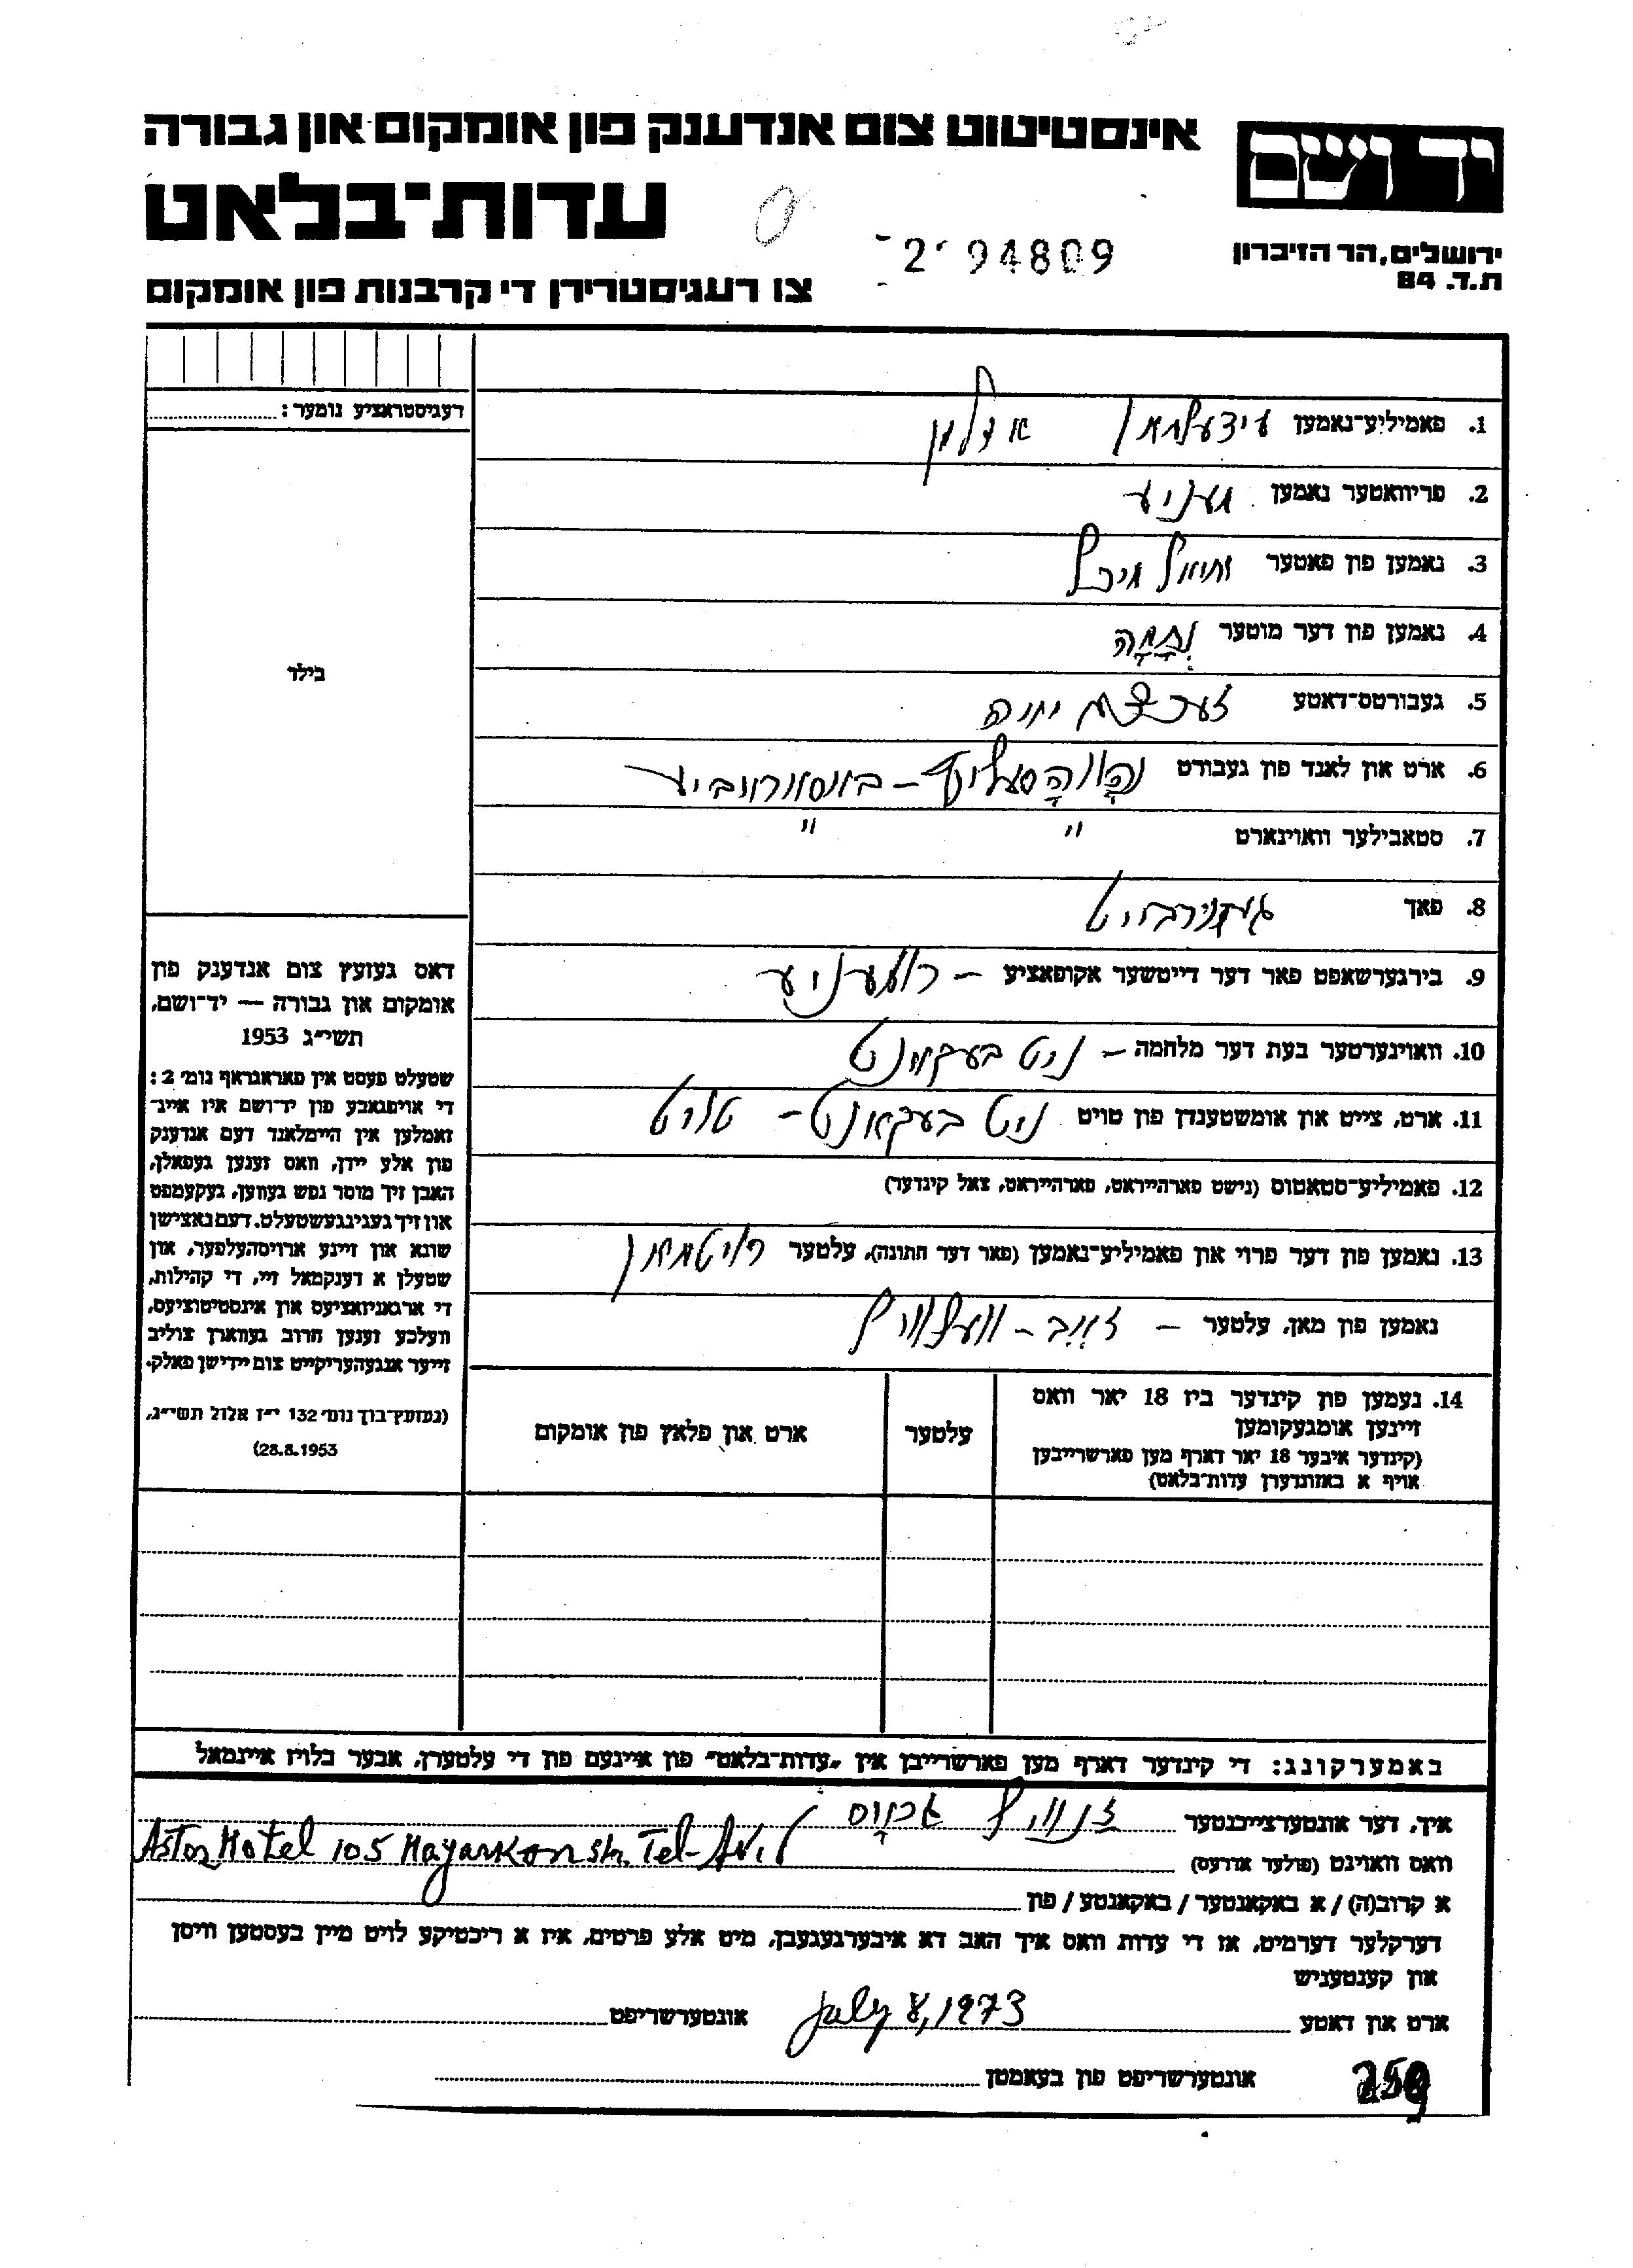 יד ושם
ירושלים, הר הזיכרון
ת.ד. 84
אינסטיטוט צום אנדענק פון אומקום און גבורה
עדות־בלאט
צו רעגיסטרירן די קרבנות פון אומקום
2 94809
רעגיסטראציע נומער:
בילד
1. פאמיליע־נאמען
2. פריוואטער נאמען
3. נאמען פון פאטער
4. נאמען פון דער מוטער נחמה
5. געבורטס־דאטע
6. ארט און לאנד פון געבורט
7. סטאבילער וואוינארט " "
8. פאך
9. בירגערשאפט פאר דער דייטשער אקופאציע – רומעניע
10. וואוינערטער בעת דער מלחמה – ניט באקאנט
11. ארט, צייט און אומשטענדן פון טויט ניט באקאנט –
12. פאמיליע־סטאטוס (נישט פארהייראט, פארהייראט, צאל קינדער)
13. נאמען פון דער פרוי און פאמיליע־נאמען (פאר דער חתונה), עלטער רויטמאן
נאמען פון מאן, עלטער – זאב – וועלוויל
14. נעמען פון קינדער ביז 18 יאר וואס
זיינען אומגעקומען
(קינדער איבער 18 יאר דארף מען פארשרייבן
אויף א באזונדערן עדות־בלאט)
עלטער
ארט און פלאץ פון אומקום
דאס געזעץ צום אנדענק פון
אומקום און גבורה — יד־ושם,
תשי״ג 1953
שטעלט פעסט אין פאראגראף נומ׳ 2:
די אויפגאבע פון יד־ושם איז איינ־
זאמלען אין היימלאנד דעם אנדענק
פון אלע יידן, וואס זענען געפאלן,
האבן זיך מוסר נפש געווען, געקעמפט
און זיך געגינגעשטעלט. דעם נאצישן
שונא און זיינע ארויסהעלפער, און
שטעלן א דענקמאל זיי, די קהילות,
די ארגאניזאציעס און אינסטיטוציעס,
וועלכע זענען חרוב געווארן צוליב
זייער אנגעהעריקייט צום יידישן פאלק.
(געזעץ־בוך נומ׳ 132 י״ז אלול תשי״ג,
28.8.1953)
באמערקונג: די קינדער דארף מען פארשרייבן אין „עדות־בלאט״ פון איינעם פון די עלטערן, אבער בלויז איינמאל
איך, דער אונטערצייכנטער
וואס וואוינט (פולער אדרעס) Astor Hotel 105 Hayarkon str. Tel-Aviv
א קרוב(ה) / א באקאנטער / באקאנטע / פון
דערקלער דערמיט, אז די עדות וואס איך האב דא איבערגעגעבן, מיט אלע פרטים, איז א ריכטיקע לויט מיין בעסטען וויסן
און קענטעניש
ארט און דאטע July 8, 1973 אונטערשריפט
אונטערשריפט פון בעאמטן
259